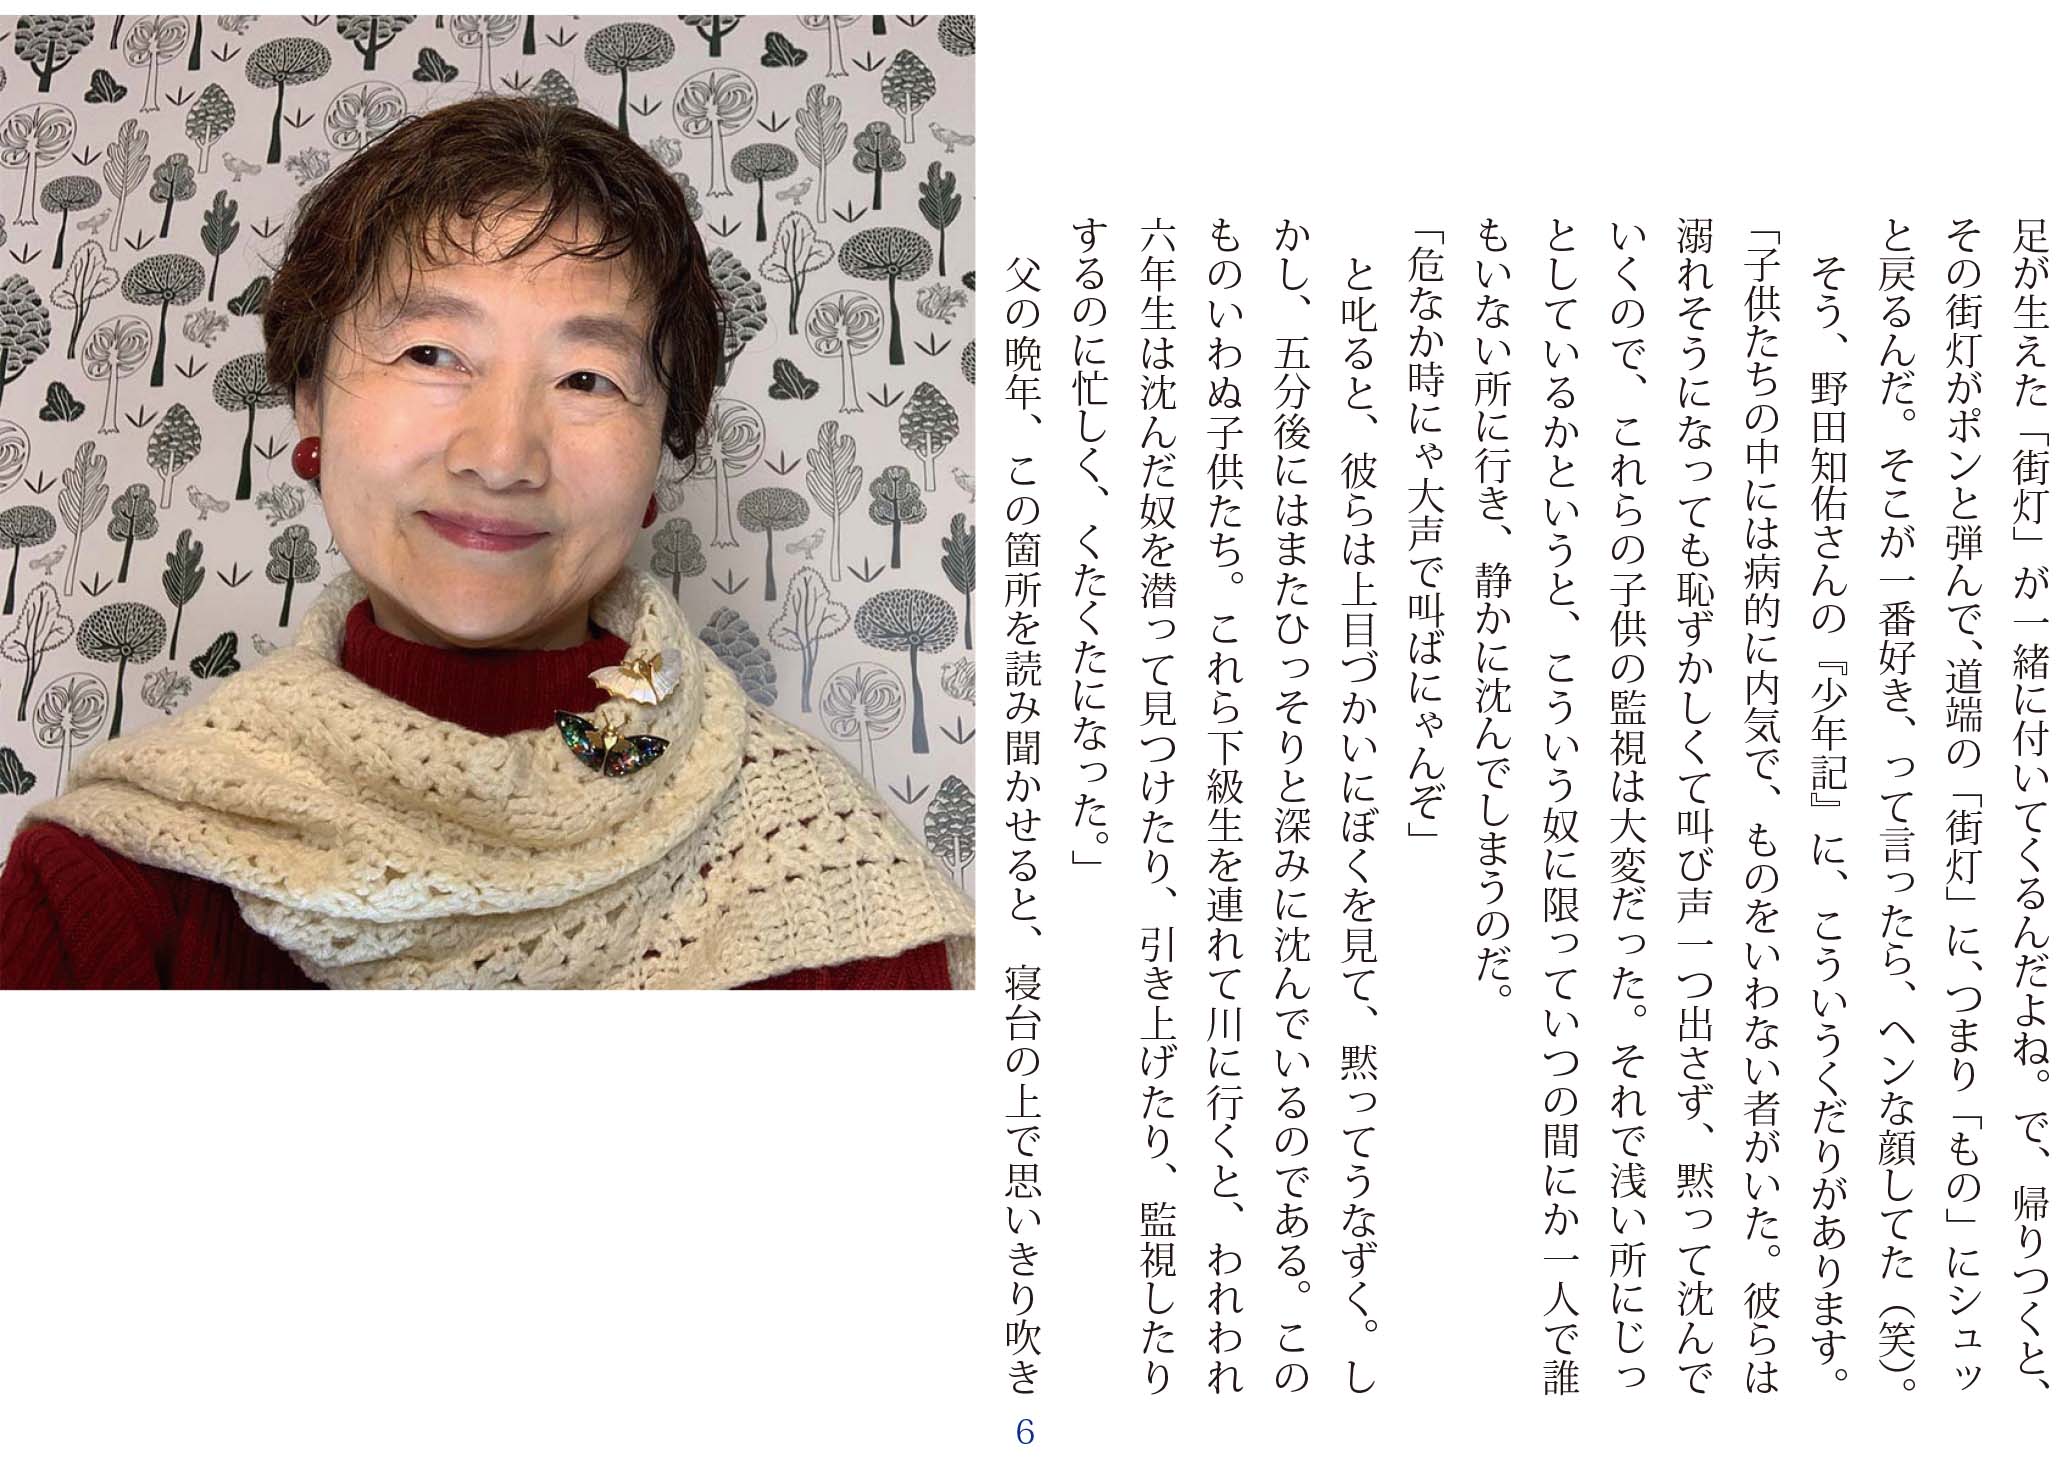 足が生えた「街灯」が一緒に付いてくるんだよね。で、帰りつくと、
その街灯がポンと弾んで、道端の「街灯」に、つまり「もの」にシュッ
と戻るんだ。そこが一番好き、って言ったら、ヘンな顔してた（笑）。
そう、野田知佑さんの『少年記』に、こういうくだりがあります。
「子供たちの中には病的に内気で、ものをいわない者がいた。彼らは
溺れそうになっても恥ずかしくて叫び声一つ出さず、黙って沈んで
いくので、これらの子供の監視は大変だった。それで浅い所にじっ
としているかというと、こういう奴に限っていつの間にか一人で誰
もいない所に行き、静かに沈んでしまうのだ。
「危なか時にゃ大声で叫ばにゃんぞ」
と叱ると、彼らは上目づかいにぼくを見て、黙ってうなずく。し
かし、五分後にはまたひっそりと深みに沈んでいるのである。この
ものいわぬ子供たち。これら下級生を連れて川に行くと、われわれ
六年生は沈んだ奴を潜って見つけたり、引き上げたり、監視したり
するのに忙しく、くたくたになった。」
父の晩年、この箇所を読み聞かせると、寝台の上で思いきり吹き
6